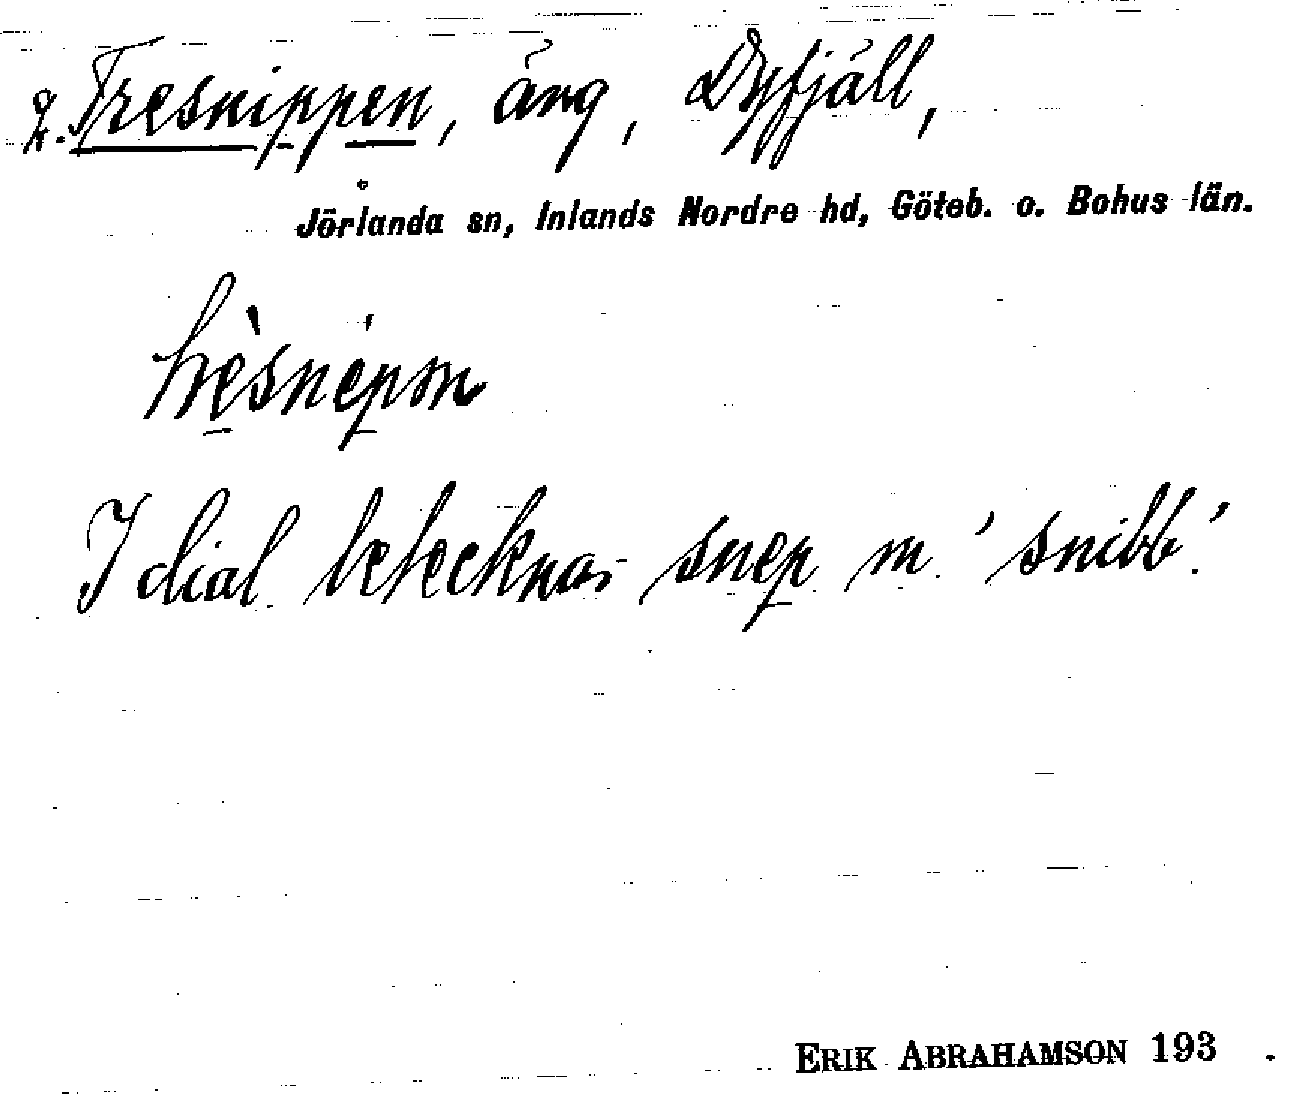 2. Tresnippen, äng, Dyfjäll,
Jörlanda sn, Inlands Nordre hd, Göteb. o. Bohus län.
trèsnépm
I dial. betecknar snep m. 'snibb'.
ERIK ABRAHAMSON 193 .